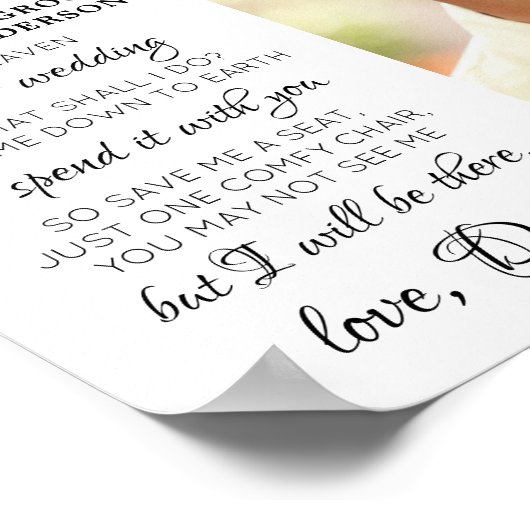 wedding
SHALL I DO?
DOWN TO EARTH
spend it with you
SO SAVE ME A SEAT,
JUST ONE COMFY CHAIR,
YOU MAY NOT SEE ME
but I will be there,
love,